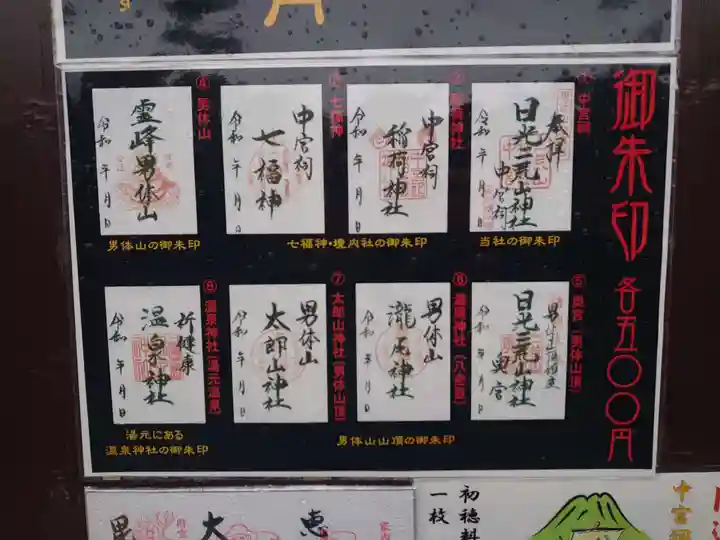 御朱印 各五〇〇円
① 中宮祠
奉拝
日光二荒山神社
中宮祠
令和 年 月 日
当社の御朱印
中宮祠
稲荷神社
令和 年 月 日
③ 七福神
中宮祠
七福神
令和 年 月 日
七福神・境内社の御朱印
④ 男体山
霊峰男体山
令和 年 月 日
男体山の御朱印
⑤ 奥宮(男体山頂)
日光二荒山神社
奥宮
男体山
瀧尾神社
令和 年 月 日
⑦ 太郎山神社(男体山頂)
男体山
太郎山神社
令和 年 月 日
男体山山頂の御朱印
⑧ 温泉神社(湯元温泉)
祈健康
温泉神社
令和 年 月 日
湯元にある
温泉神社の御朱印
恵
大
初穂料
一枚
中宮祠